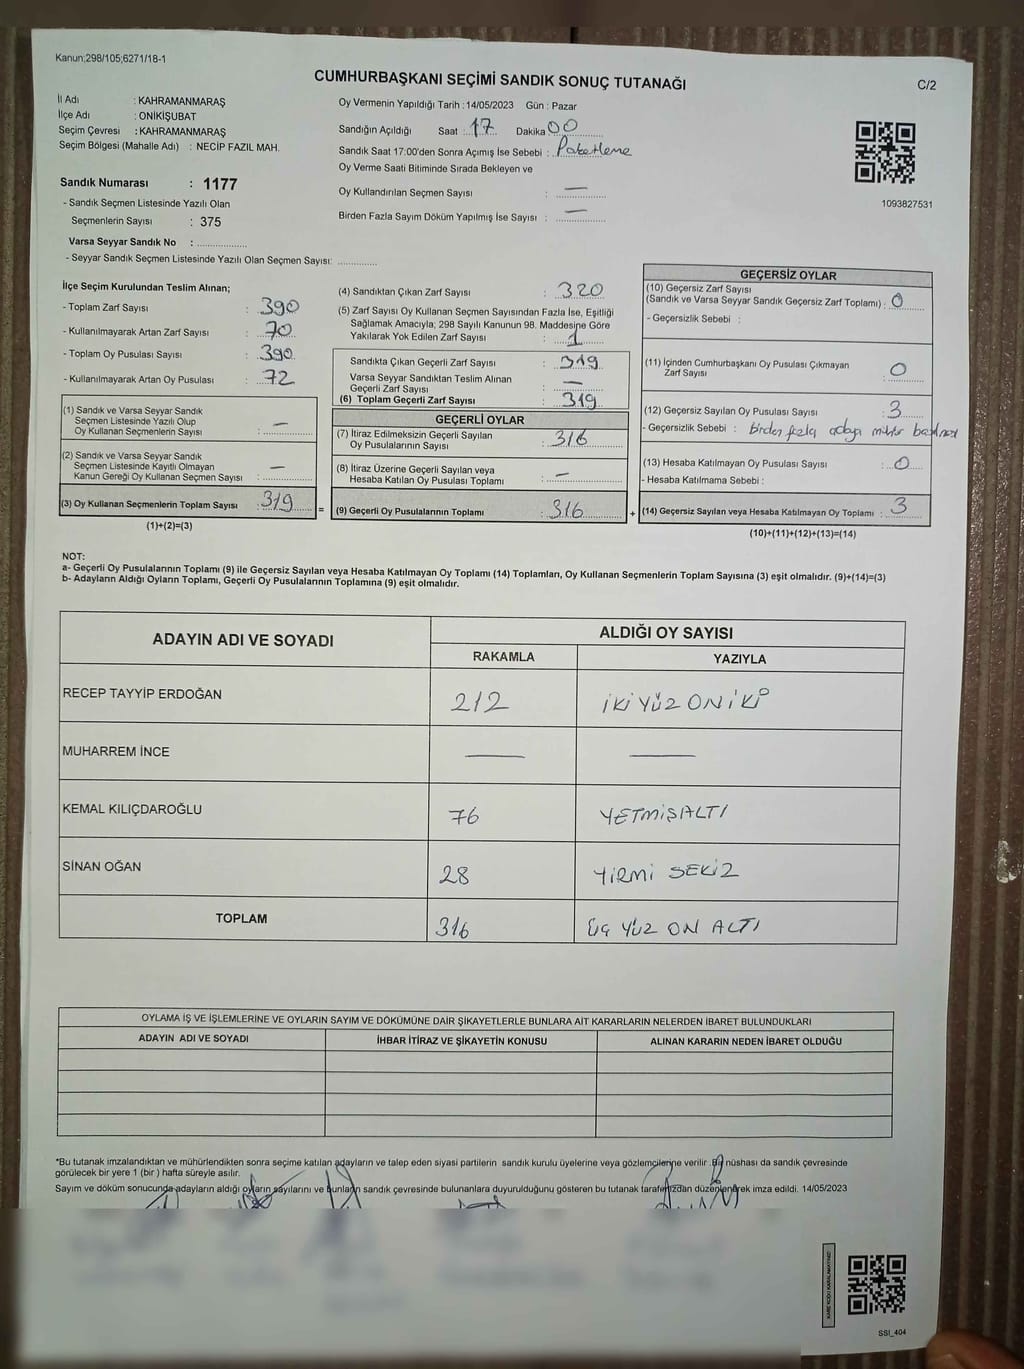 Kanun;298/105;6271/18-1
CUMHURBAŞKANI SEÇİMİ SANDIK SONUÇ TUTANAĞI
C/2
İl Adı : KAHRAMANMARAŞ
İlçe Adı : ONİKİŞUBAT
Seçim Çevresi : KAHRAMANMARAŞ
Seçim Bölgesi (Mahalle Adı) : NECİP FAZIL MAH.
Sandık Numarası : 1177
- Sandık Seçmen Listesinde Yazılı Olan
Seçmenlerin Sayısı : 375
Varsa Seyyar Sandık No : ..................
- Seyyar Sandık Seçmen Listesinde Yazılı Olan Seçmen Sayısı: ..............
Oy Vermenin Yapıldığı Tarih : 14/05/2023 Gün : Pazar
Sandığın Açıldığı Saat : 17 Dakika 00
Sandık Saat 17:00'den Sonra Açımış İse Sebebi : Paketleme
Oy Verme Saati Bitiminde Sırada Bekleyen ve
Oy Kullandırılan Seçmen Sayısı : —
Birden Fazla Sayım Döküm Yapılmış İse Sayısı : —
1093827531
İlçe Seçim Kurulundan Teslim Alınan;
- Toplam Zarf Sayısı : 390
- Kullanılmayarak Artan Zarf Sayısı : 70
- Toplam Oy Pusulası Sayısı : 390
- Kullanılmayarak Artan Oy Pusulası : 72
(1) Sandık ve Varsa Seyyar Sandık
Seçmen Listesinde Yazılı Olup
Oy Kullanan Seçmenlerin Sayısı : —
(2) Sandık ve Varsa Seyyar Sandık
Seçmen Listesinde Kayıtlı Olmayan
Kanun Gereği Oy Kullanan Seçmen Sayısı : —
(3) Oy Kullanan Seçmenlerin Toplam Sayısı : 319 =
(1)+(2)=(3)
(4) Sandıktan Çıkan Zarf Sayısı : 320
(5) Zarf Sayısı Oy Kullanan Seçmen Sayısından Fazla İse, Eşitliği
Sağlamak Amacıyla; 298 Sayılı Kanunun 98. Maddesine Göre
Yakılarak Yok Edilen Zarf Sayısı : 1
Sandıkta Çıkan Geçerli Zarf Sayısı : 319
Varsa Seyyar Sandıktan Teslim Alınan
Geçerli Zarf Sayısı : —
(6) Toplam Geçerli Zarf Sayısı : 319
GEÇERLİ OYLAR
(7) İtiraz Edilmeksizin Geçerli Sayılan
Oy Pusulasının Sayısı : 316
(8) İtiraz Üzerine Geçerli Sayılan veya
Hesaba Katılan Oy Pusulası Toplamı : —
(9) Geçerli Oy Pusulalarının Toplamı : 316 +
GEÇERSİZ OYLAR
(10) Geçersiz Zarf Sayısı
(Sandık ve Varsa Seyyar Sandık Geçersiz Zarf Toplamı) : 0
- Geçersizlik Sebebi :
(11) İçinden Cumhurbaşkanı Oy Pusulası Çıkmayan
Zarf Sayısı : 0
(12) Geçersiz Sayılan Oy Pusulası Sayısı : 3
- Geçersizlik Sebebi : birden fazla adaya mühür
(13) Hesaba Katılmayan Oy Pusulası Sayısı : 0
- Hesaba Katılmama Sebebi :
(14) Geçersiz Sayılan veya Hesaba Katılmayan Oy Toplamı : 3
(10)+(11)+(12)+(13)=(14)
NOT:
a- Geçerli Oy Pusulalarının Toplamı (9) ile Geçersiz Sayılan veya Hesaba Katılmayan Oy Toplamı (14) Toplamları, Oy Kullanan Seçmenlerin Toplam Sayısına (3) eşit olmalıdır. (9)+(14)=(3)
b- Adayların Aldığı Oyların Toplamı, Geçerli Oy Pusulalarının Toplamına (9) eşit olmalıdır.
ADAYIN ADI VE SOYADI ALDIĞI OY SAYISI
RAKAMLA YAZIYLA
RECEP TAYYİP ERDOĞAN 212 İKİ YÜZ ON İKİ
MUHARREM İNCE — —
KEMAL KILIÇDAROĞLU 76 YETMİŞALTI
SİNAN OĞAN 28 YİRMİ SEKİZ
TOPLAM 316 ÜÇ YÜZ ON ALTI
OYLAMA İŞ VE İŞLEMLERİNE VE OYLARIN SAYIM VE DÖKÜMÜNE DAİR ŞİKAYETLERLE BUNLARA AİT KARARLARIN NELERDEN İBARET BULUNDUKLARI
ADAYIN ADI VE SOYADI İHBAR İTİRAZ VE ŞİKAYETİN KONUSU ALINAN KARARIN NEDEN İBARET OLDUĞU
*Bu tutanak imzalandıktan ve mühürlendikten sonra seçime katılan adayların ve talep eden siyasi partilerin sandık kurulu üyelerine veya gözlemcilerine verilir. Bir nüshası da sandık çevresinde
görülecek bir yere 1 (bir ) hafta süreyle asılır.
Sayım ve döküm sonucunda adayların aldığı oyların sayılarını ve bunların sandık çevresinde bulunanlara duyurulduğunu gösteren bu tutanak tarafımızdan düzenlenerek imza edildi. 14/05/2023
KARE KODU KARALAMAYINIZ!
SSI_404